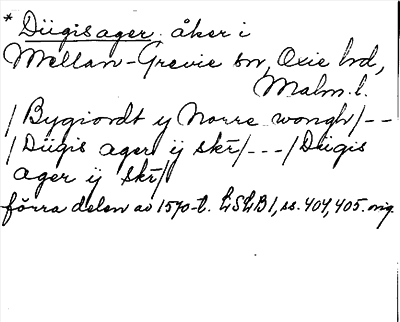 * Dügisager, åker i
Mellan-Grevie sn, Oxie hd,
Malm.l.
/Bygiordt y Norre wongh/--
/Dügis ager ÿ skr/---/Dügis
ager ÿ skr/
förra delen av 1570-t. LSLB1, ss. 404, 405. orig.